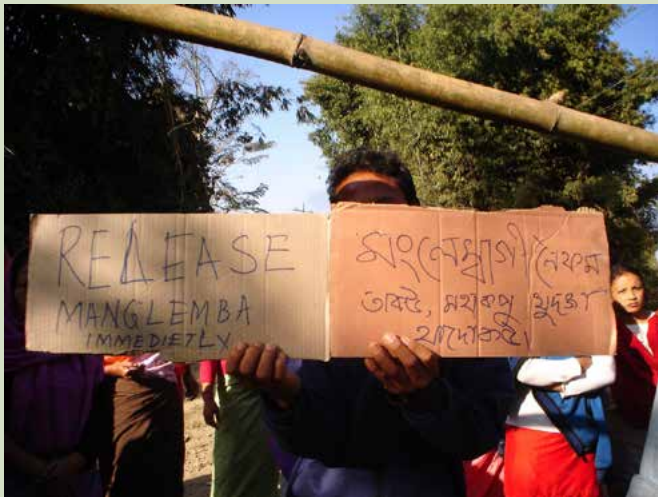 RELEASE
MANGLEMBA
IMMEDIETLY
মংলেম্বাগী লৈফম
তাকউ, মহাকপু খুদক্তা
থাদোকউ।